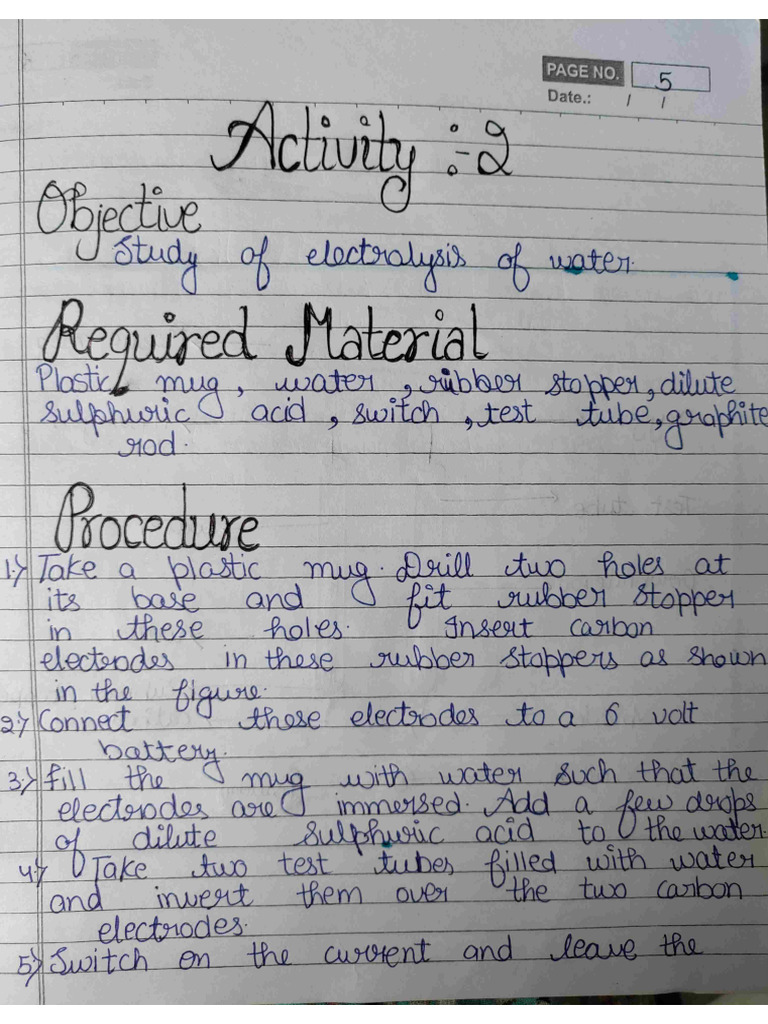 PAGE NO. 5
Date.: / /
Activity :-2
Objective
Study of electralysis of water.
Required Material
Plastic mug, water, rubber stopper, dilute
sulphuric acid, switch, test tube, graphite
rod.
Procedure
1.) Take a plastic mug. Drill two holes at
its base and fit rubber stopper
in these holes. Insert carbon
electrodes in these rubber stoppers as shown
in the figure.
2.) Connect these electrodes to a 6 volt
battery.
3.) fill the mug with water such that the
electrodes are immersed. Add a few drops
of dilute sulphuric acid to the water.
4.) Take two test tubes filled with water
and invert them over the two carbon
electrodes.
5.) Switch on the current and leave the